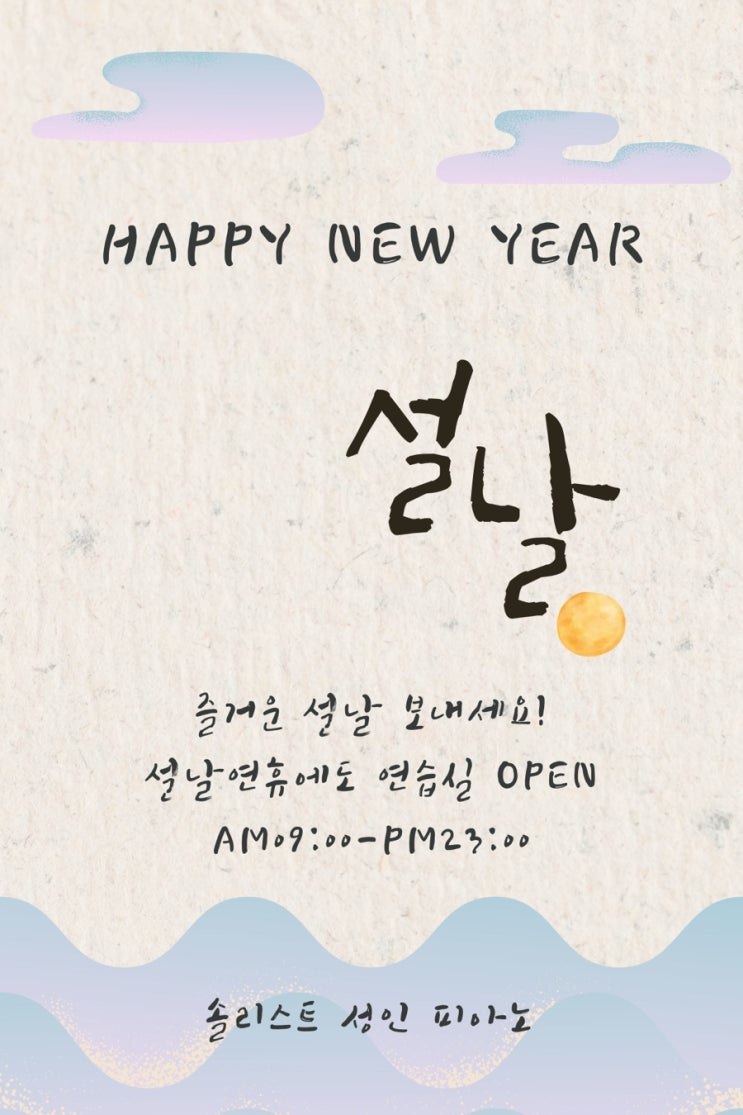 HAPPY NEW YEAR
설날
즐거운 설날 보내세요!
설날연휴에도 연습실 OPEN
AM09:00-PM23:00
솔리스트 성인 피아노